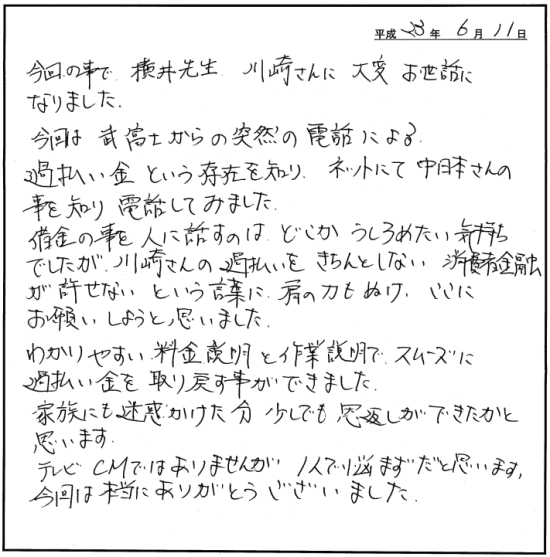 平成23年6月11日
今回の事で 横井先生 川崎さんに 大変 お世話に
なりました.
今回は 武富士からの突然の電話による.
過払い金 という存在を知り. ネットにて 中日本さんの
事を知り 電話してみました.
借金の事を 人に話すのは. どこか うしろめたい気持ち
でしたが. 川崎さんの 過払いを きちんとしない 消費者金融
が 許せない という言葉に. 肩の力もぬけ. ここに
お願いしようと思いました.
わかりやすい 料金説明と作業説明で. スムーズに
過払い金を 取り戻す事ができました.
家族にも迷惑かけた分 少しでも 恩返しができたかと
思います.
テレビ CMではありませんが 1人で悩まずだと思います,
今回は本当にありがとう ございました.